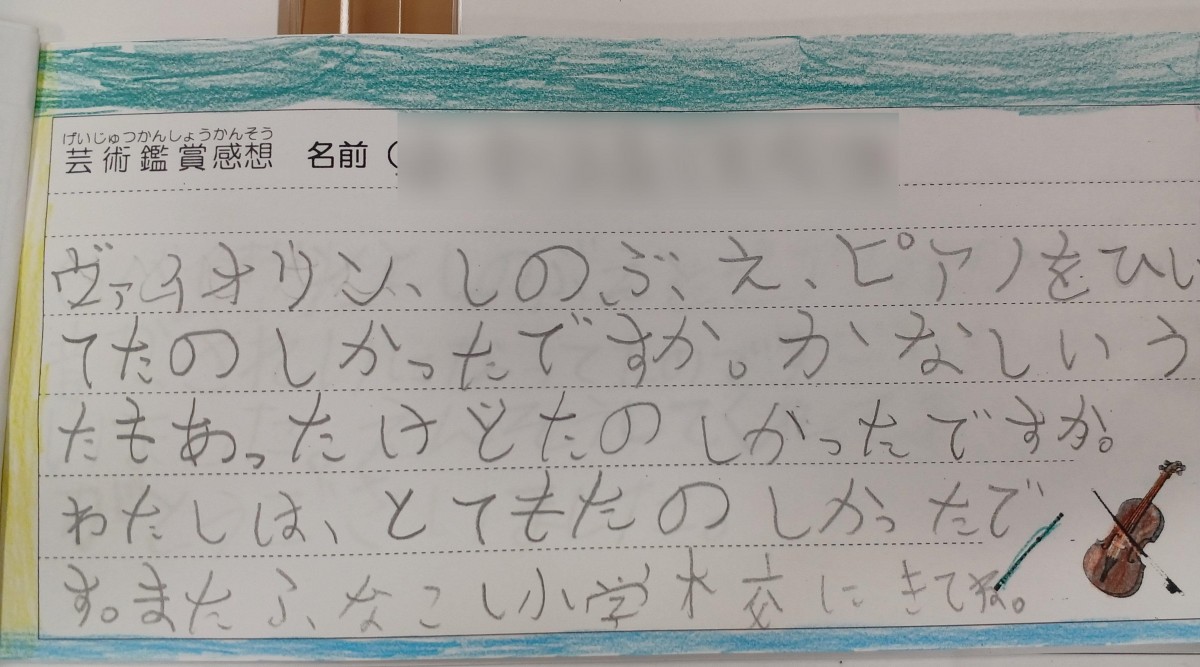 げいじゅつかんしょうかんそう
芸術鑑賞感想 名前(
ヴァイオリン、しのぶえ、ピアノをひい
てたのしかったですか。かなしいう
たもあったけどたのしかったですか。
わたしは、とてもたのしかったで
す。またふなこし小学校にきてね。